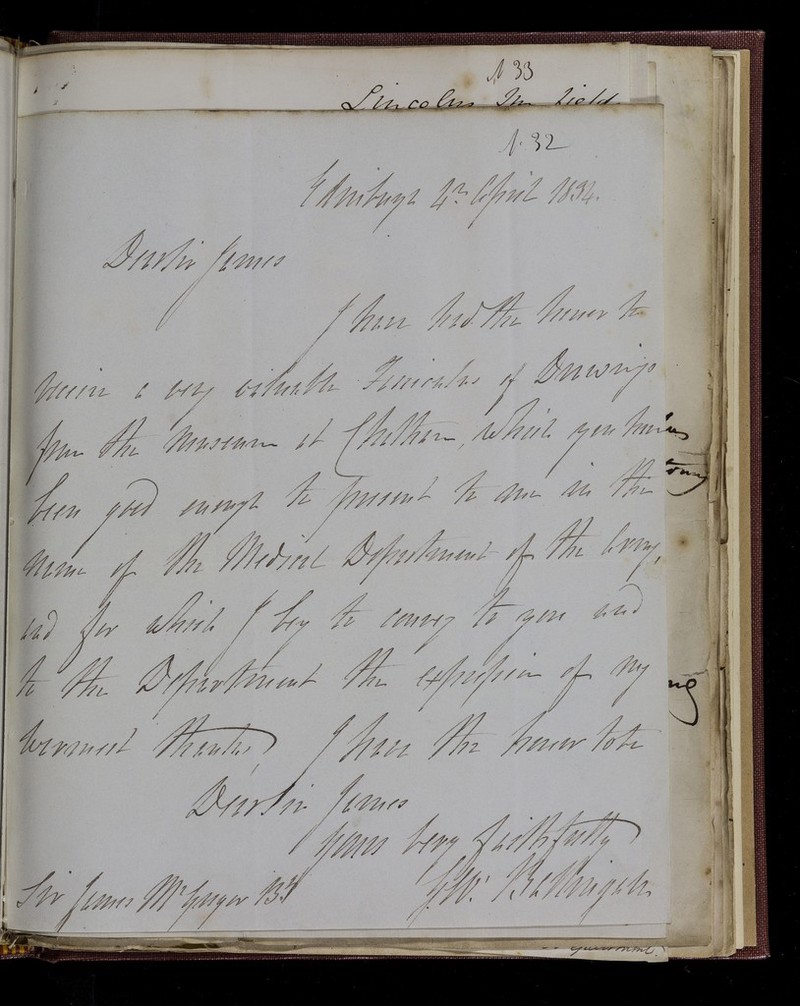 N 33
Lincolns Inn Field
N. 32
Edinburgh 4th April 1834.
Dear Sir James
I have had the honor to
receive a very valuable Fasciculus of Drawings
from the Museum at Chatham, which you have
been good enough to present to me in the
name of the Medical Department of the Army,
and for which I beg to convey to you and
to the Department the expression of my
warmest thanks, I have the honor to be
Dear Sir James
Yours very faithfully
Geo: Ballingall
Sir James McGrigor Bt